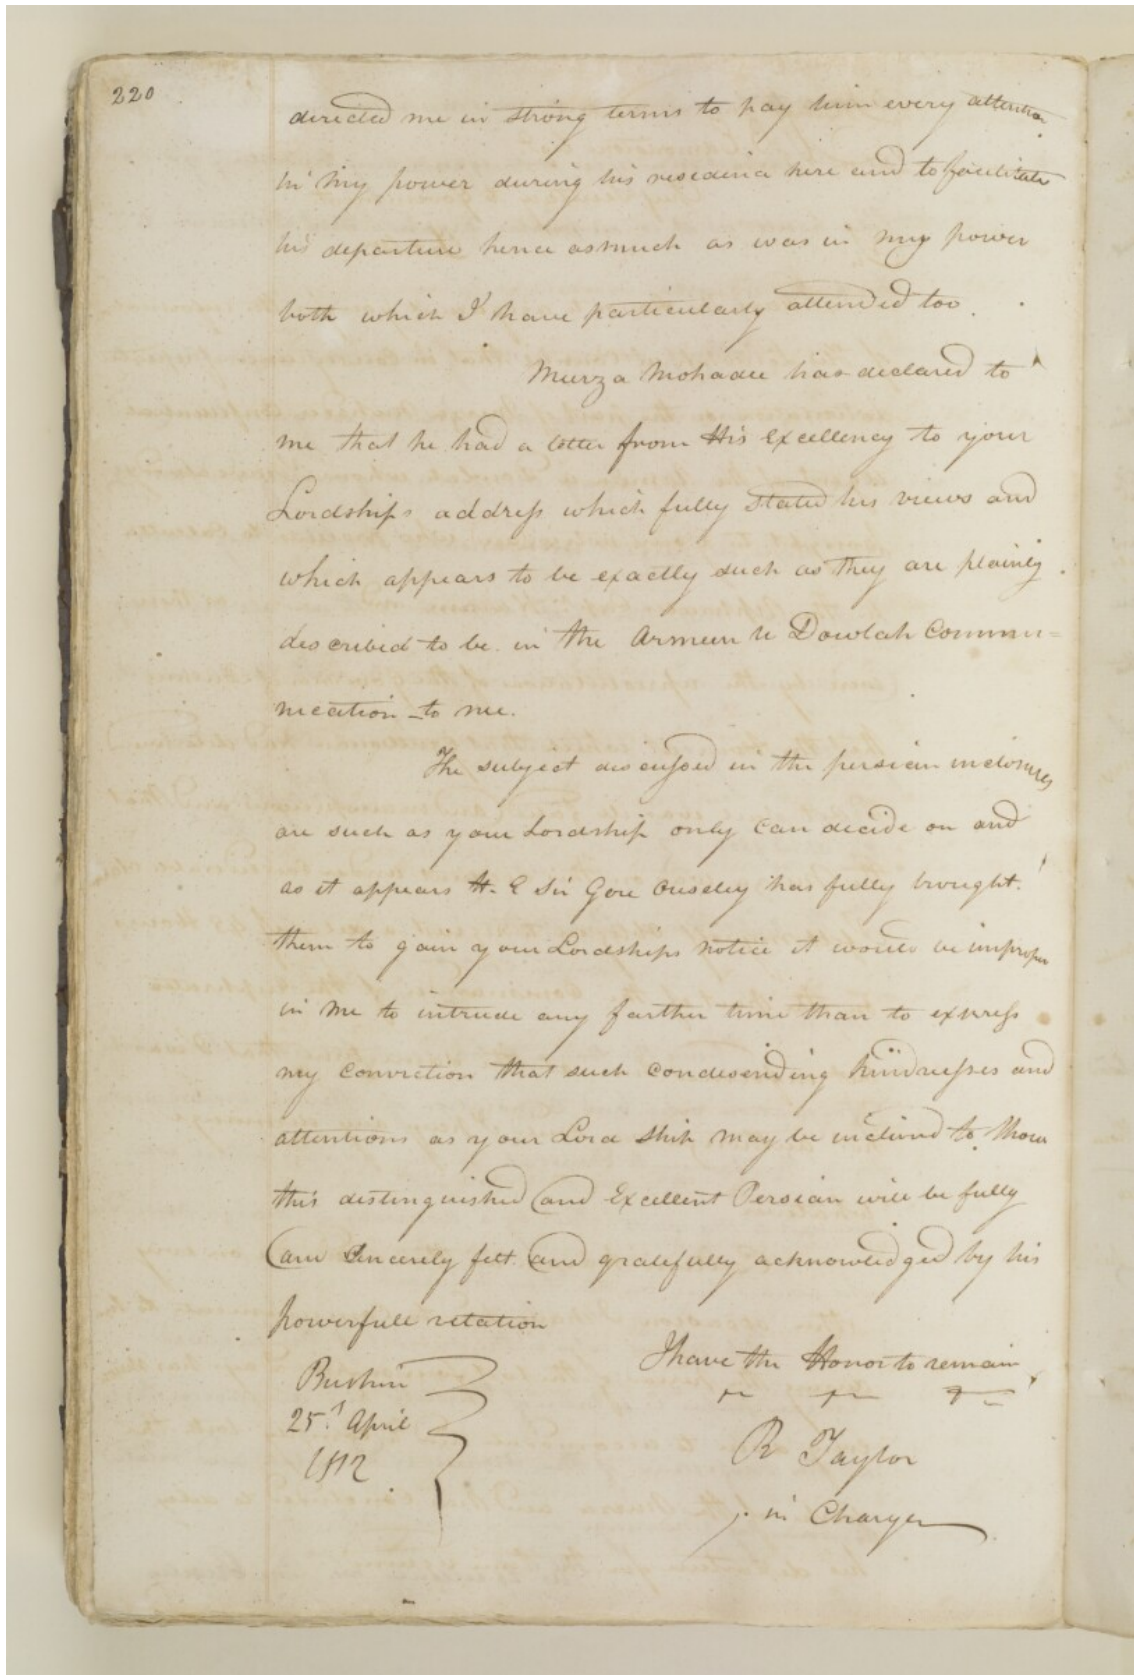 220
directed me in strong terms to pay him every attention
in my power during his residence here and to facilitate
his departure hence as much as was in my power
both which I have particularly attended too.
Murza Mohadee has declared to
me that he had a letter from His Excellency to your
Lordships address which fully stated his views and
which appears to be exactly such as they are plainly
described to be in the Armeen u Dowlah Commu=
nication to me.
The subject discussed in the persian inclosures
are such as your Lordship only can decide on and
as it appears H. E Sir Gore Ouseley has fully brought
them to gain your Lordships notice it would be improper
in me to intrude any farther time than to express
my conviction that such condesending kindnesses and
attentions as your Lord Ship may be inclined to show
this distinguished and Excellent Persian will be fully
and Sincerely felt and gratefully acknowledged by his
powerfull relation
I have the Honor to remain
Bushire
25th April
1812
R Taylor
in Charge